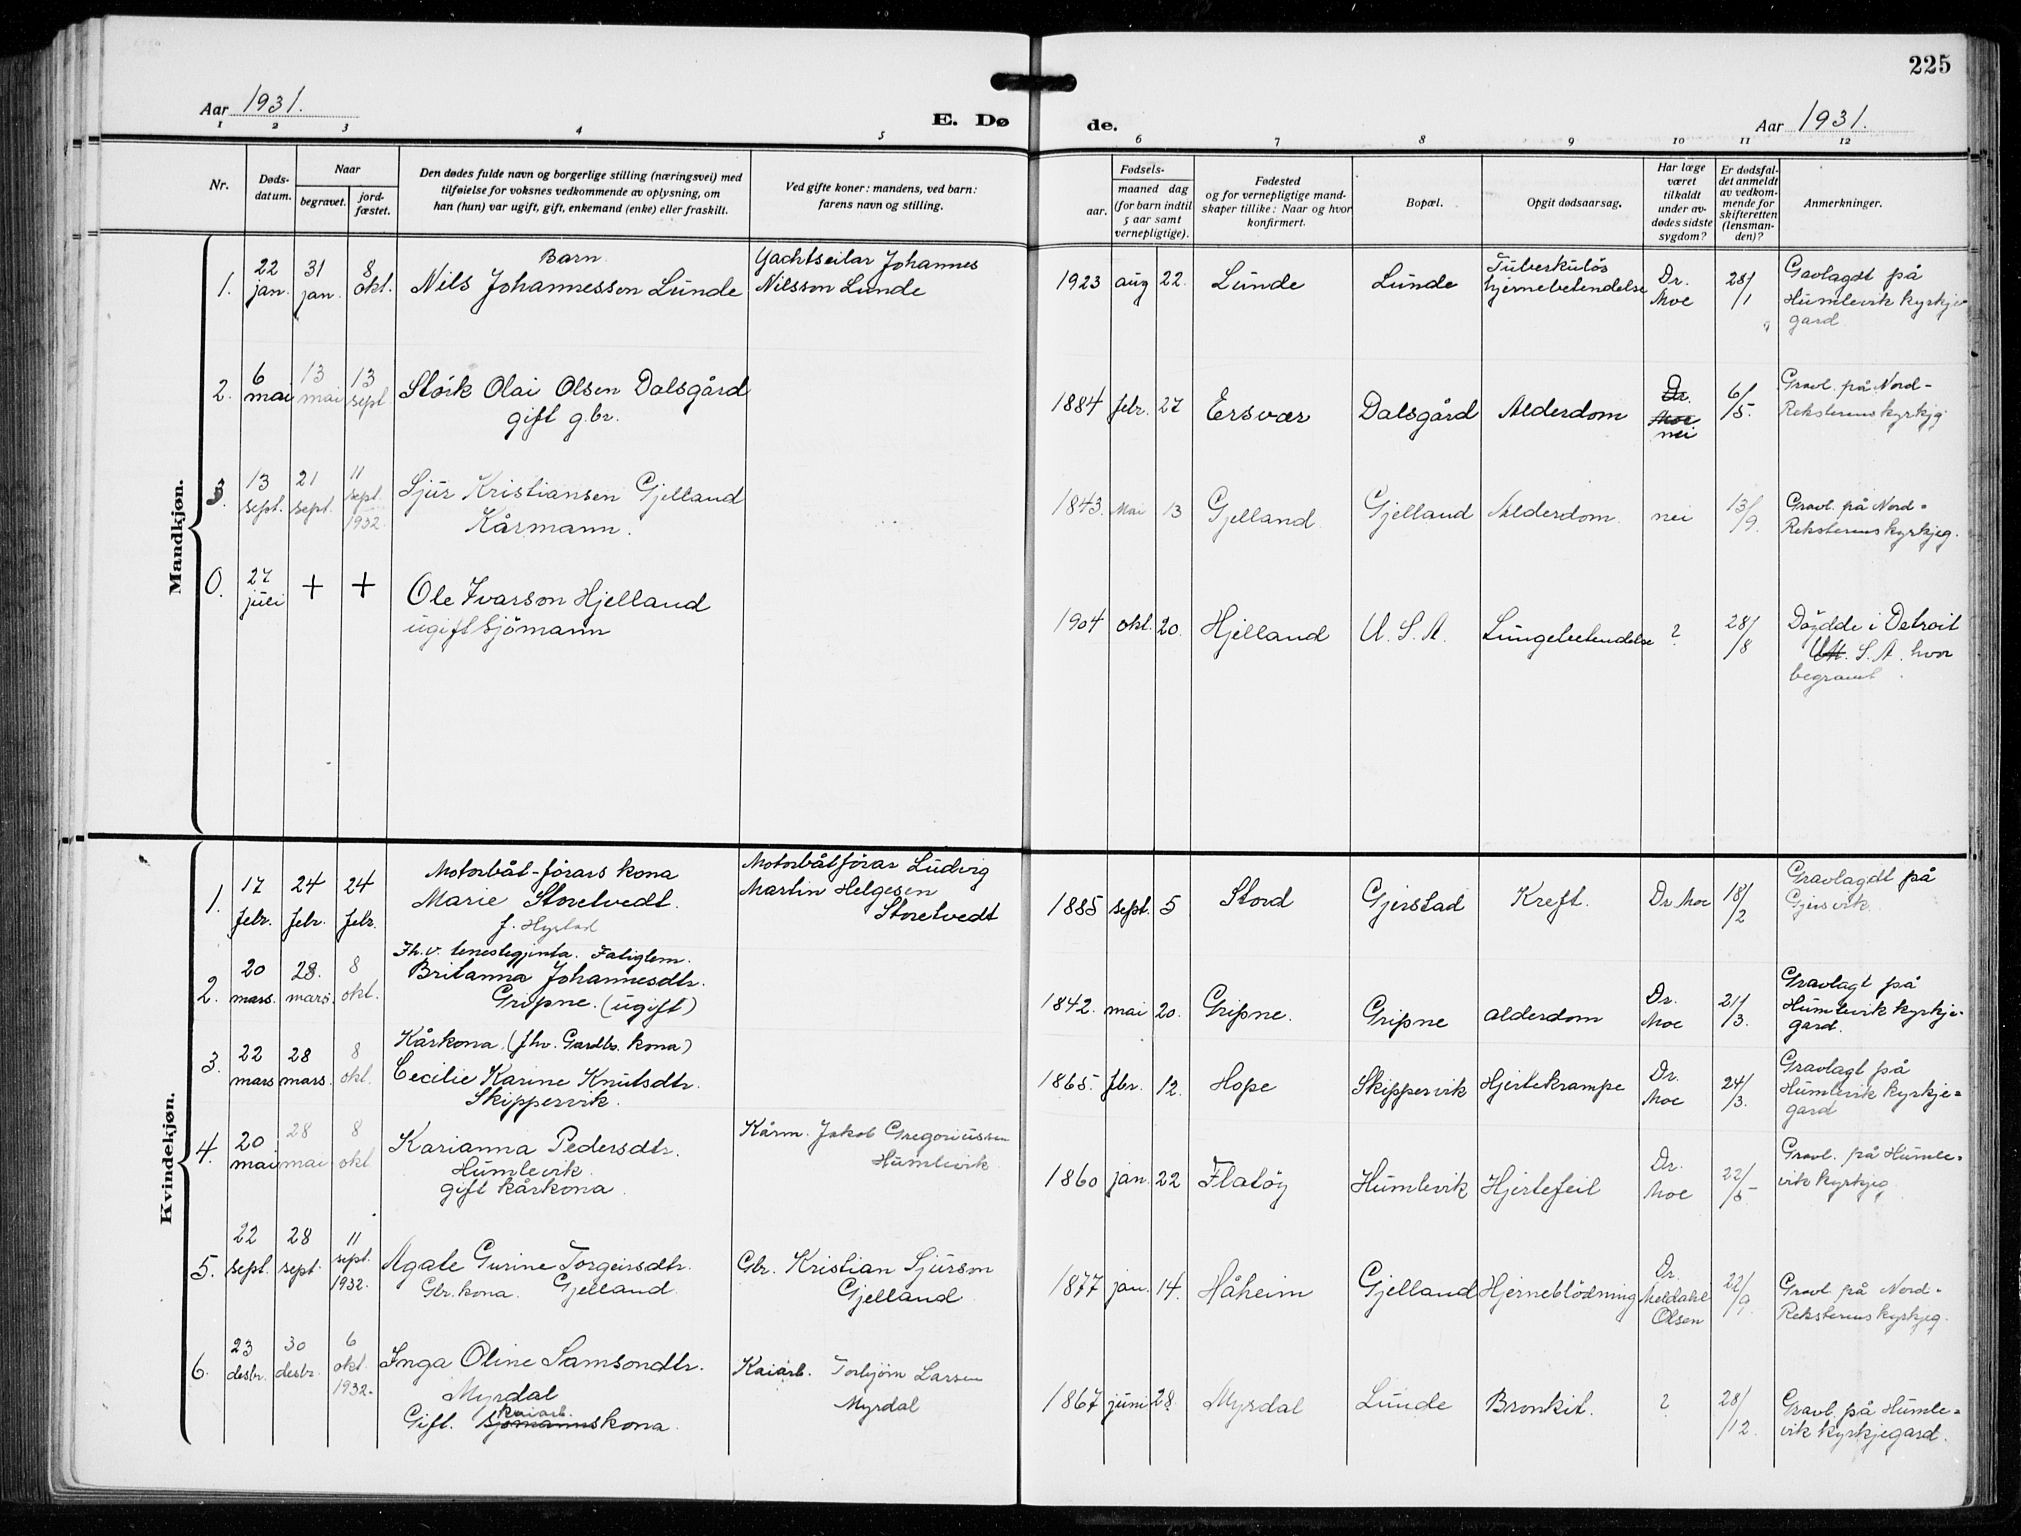 225
Aar 1931.
E. Dø
de.
Aar 1931.
1 2 3 4 5 6 7 8 9 10 11 12
Nr.
Døds-
datum.
Naar
begravet.
jord-
fæstet.
Den dødes fulde navn og borgerlige stilling (næringsvei) med
tilføielse for voksnes vedkommende av oplysning, om
han (hun) var ugift, gift, enkemand (enke) eller fraskilt.
Ved gifte koner: mandens, ved barn:
farens navn og stilling.
Fødsels-
aar.
maaned dag
(for barn indtil
5 aar samt
vernepligtige).
Fødested
og for vernepligtige mand-
skaper tillike: Naar og hvor
konfirmert.
Bopæl.
Opgit dødsaarsag.
Har læge
været
tilkaldt
under av-
dødes sidste
sygdom?
Er dødsfal-
det anmeldt
av vedkom-
mende for
skifteretten
(lensman-
den)?
Anmerkninger.
Mandkjøn.
1.
22
jan.
31
jan.
8
okt.
Barn.
Nils Johannesson Lunde
Yachtseilar Johannes
Nilsson Lunde
1923 aug 22.
Lunde
Lunde
Tuberkuløs
hjernebetendelse
Dr.
Moe
28/1
Gavlagdt på
Humlevik kyrkje-
gard
2.
6
mai
13
mai
13
sept.
Størk Olai Olsen Dalsgård
gift gbr.
1884 febr. 27
Ersvær
Dalsgård
Alderdom
Dr.
Moe
nei
6/5.
Gravl. på Nord-
Reksterens kyrkjg
3.
13
sept.
21
sept.
11
sept.
1932
Sjur Kristiansen Gjelland
Kårmann.
1843. Mai 13
Gjelland
Gjelland
Alderdom.
nei
13/9.
Gravl. på Nord-
Reksterens kyrkjeg.
0.
27
juli
+
+
Ole Ivarson Hjelland
ugift Sjömann
1904 okt. 20.
Hjelland
U. S. A.
Lungebetendelse
?
28/8
Döydde i Detroit
S. A. hvor
begravet.
Kvindekjøn.
1.
17
febr.
24
febr.
24
febr.
Motorbåt-förars kona
Marie Storetvedt.
f. Hystad
Motorbåtförar Ludvig
Martin Helgesen
Storetvedt
1885 sept. 5
Stord
Gjerstad
Kreft.
Dr Moe
18/2
Gravlagdt på
Gjersvik.
2.
20
mars.
28.
mars.
8
okt.
Fh.v. tenestegjenta. Fatiglem.
Britanna Johannesdtr.
Gripne. (ugift)
1842. mai 20.
Gripne.
Gripne
alderdom
Dr.
Moe
21/3.
Gravlagt på
Humlevik kyrkje-
gard.
3.
22
mars
28
mars.
8
okt.
Kårkona. (fhv. Gardbr. kona)
Cecilie Karine Knutsdtr.
Skippervik.
1865. febr. 12.
Hope
Skippervik
Hjertekrampe
Dr.
Moe
24/3.
Gravlagt på
Humlevik kyrkje-
gard
4.
20
mai
28
mai
8
okt
Karianna Pedersdtr.
Humlevik.
gift kårkona.
Kårm. Jakob Gregoriussen
Humlevik
1860 jan. 22
Flatöy
Humlevik
Hjertefeil
Dr.
Moe
22/5
Gravl. på Humle-
vik kyrkjeg
5.
22
sept.
28
sept.
11
sept.
1932.
Agate Gurine Torgeirsdtr.
Gbr. kona. Gjelland.
Gbr. Kristian Sjurson
Gjelland.
1877 jan. 14.
Håheim
Gjelland
Hjerneblödning
Dr.
Meldahl
Olsen
22/9.
Gravl. på Nord-
Reksterens kyrkjeg.
6.
23
desbr.
30
desbr.
6
okt.
1932.
Inga Oline Samsondtr.
Myrdal
kaiarb.
Gift. Sjömannskona.
Kaiarb. Torbjörn Larsen
Myrdal
1867 juni 28.
Myrdal
Lunde
Bronkit.
?
28/12.
Gravl. på Humle-
vik kyrkjegard.